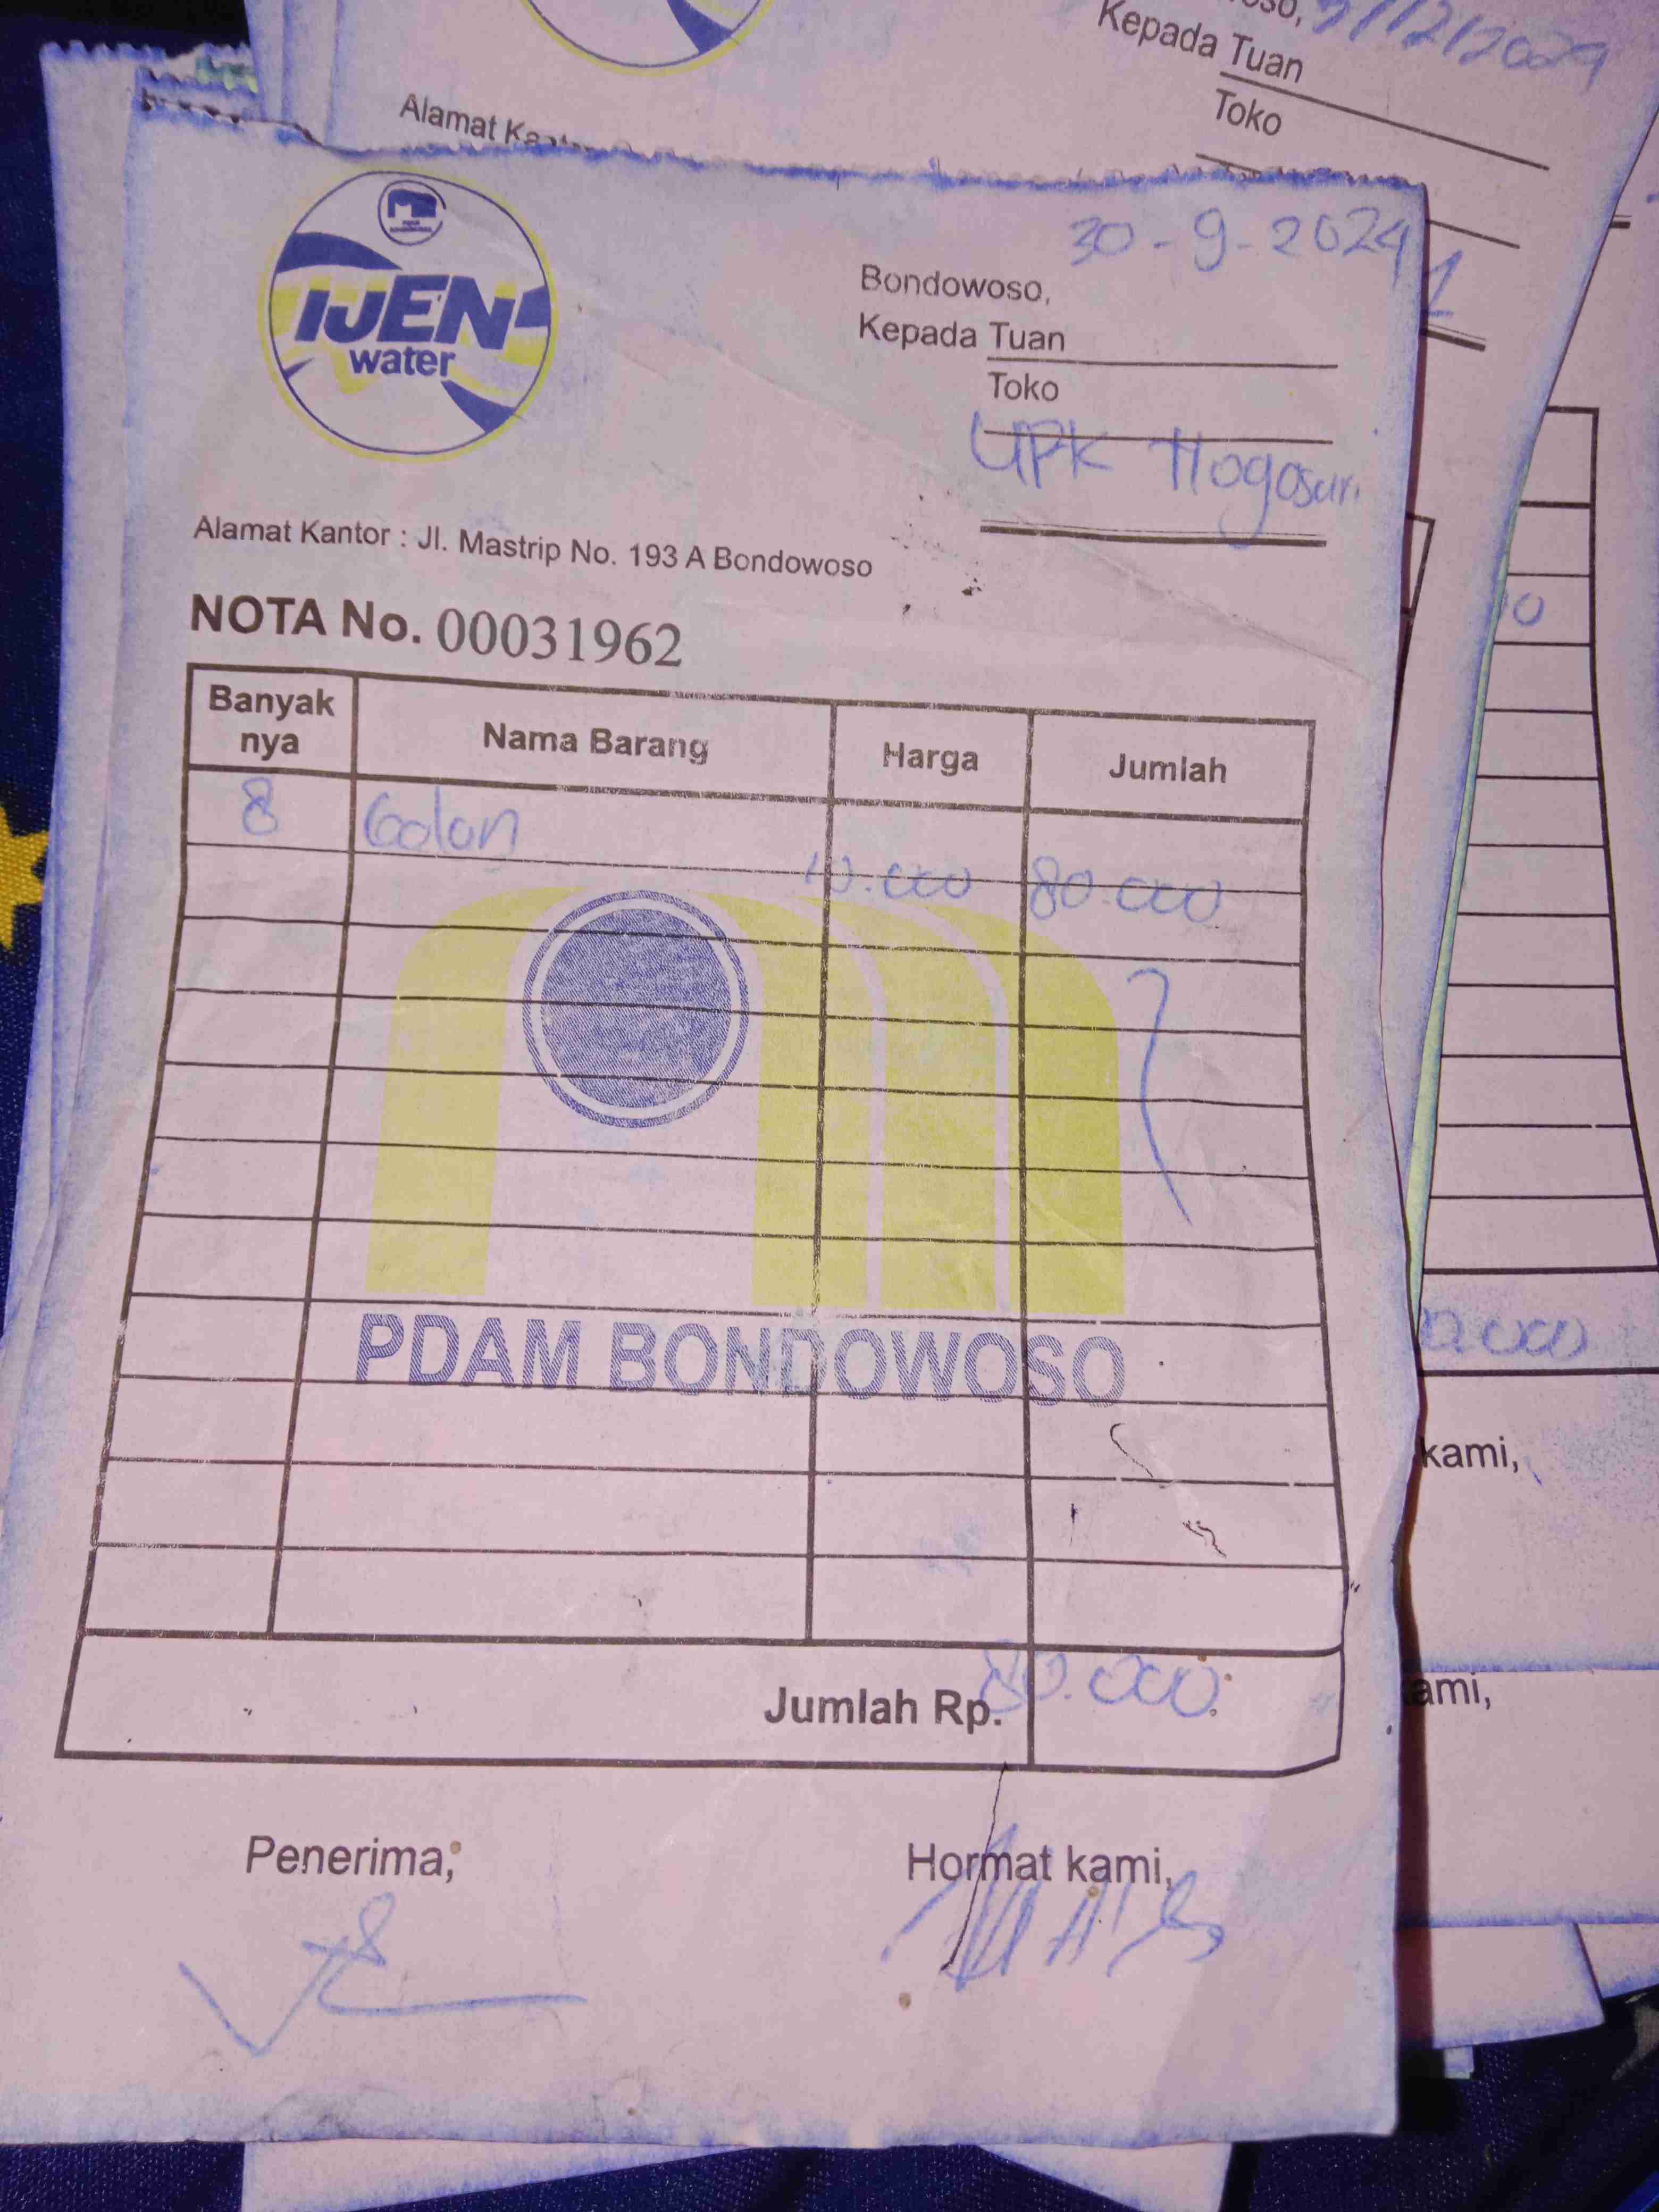 Kepada Tuan
Toko
Alamat
30-9-2024
IJEN
water
Bondowoso,
Kepada Tuan
Toko
UPK Tlogosari
Alamat Kantor : Jl. Mastrip No. 193 A Bondowoso
NOTA No. 00031962
Banyak nya Nama Barang Harga Jumlah
8 Galon 10.000 80.000
PDAM BONDOWOSO
Jumlah Rp. 80.000
Penerima, Hormat kami,
kami,